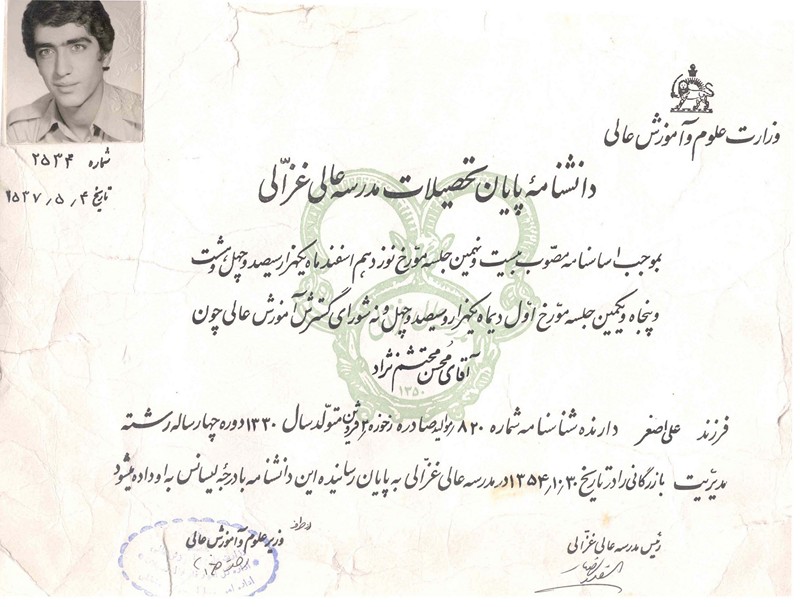 وزارت علوم و آموزش عالی
شماره ۲۵۳۴
تاریخ ۲۵۳۷٫۵٫۴
دانشنامهٔ پایان تحصیلات مدرسه عالی غزّالی
بموجب اساسنامه مصوّب بیست و نهمین جلسه مورّخ نوزدهم اسفند ماه یکهزار سیصد و چهل و هشت
و پنجاه و یکمین جلسه مورّخ اوّل دیماه یکهزار و سیصد و چهل و نه شورای گسترش آموزش عالی چون
آقای محسن محتشم نژاد
۱۳۵۰
فرزند علی اصغر دارنده شناسنامه شماره ۸۲۰ صادره از حوزه ۲ قزوین متولّد سال ۱۳۳۰ دوره چهار ساله رشته
مدیریّت بازرگانی را در تاریخ ۱۳۵۴٫۱۰٫۳۰ در مدرسه عالی غزّالی به پایان رسانیده این دانشنامه با درجهٔ لیسانس به او داده میشود
رئیس مدرسه عالی غزّالی
از طرف
وزیر علوم و آموزش عالی